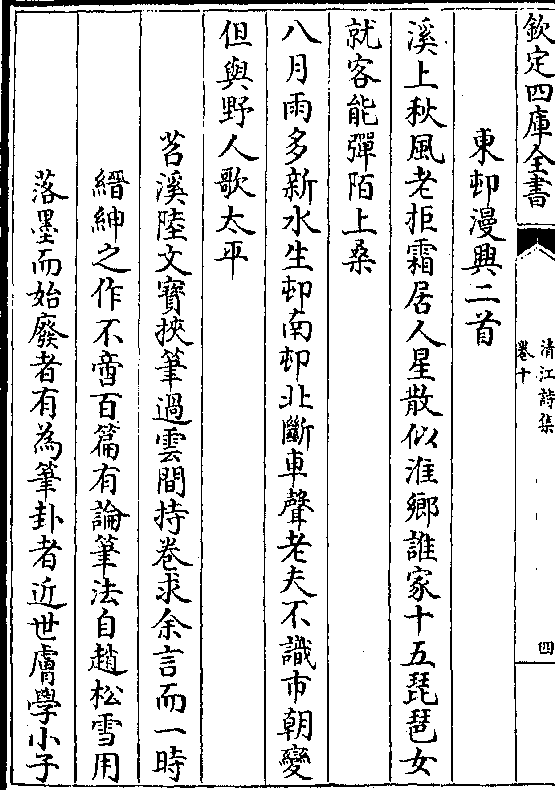 欽定四庫全書
清江詩集
卷十
四
東邨漫興二首
溪上秋風老拒霜居人星散似淮鄉誰家十五琵琶女
就客能彈陌上桑
八月雨多新水生邨南邨北斷車聲老夫不識市朝變
但與野人歌太平
苕溪陸文寶挾筆過雲間持卷求余言而一時
縉紳之作不啻百篇有論筆法自趙松雪用
落墨而始廢者有為筆卦者近世膚學小子